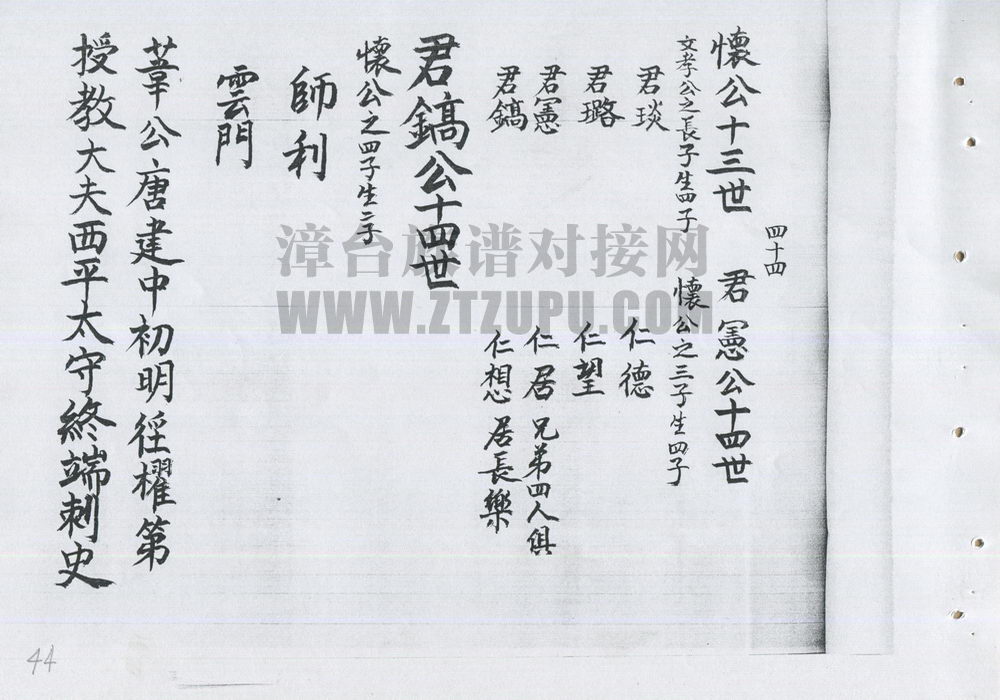 四十四
懷公十三世
文孝公之長子生四子
君琰
君璐
君憲
君鎬
君憲公十四世
懷公之三子生四子
仁德
仁望
仁居 兄弟四人俱
仁想 居長樂
君鎬公十四世
懷公之四子生二子
師利
雲門
公唐建中初明徑櫂第
授教大夫西平太守終端刺史
漳台族谱对接网
WWW.ZTZUPU.COM
44